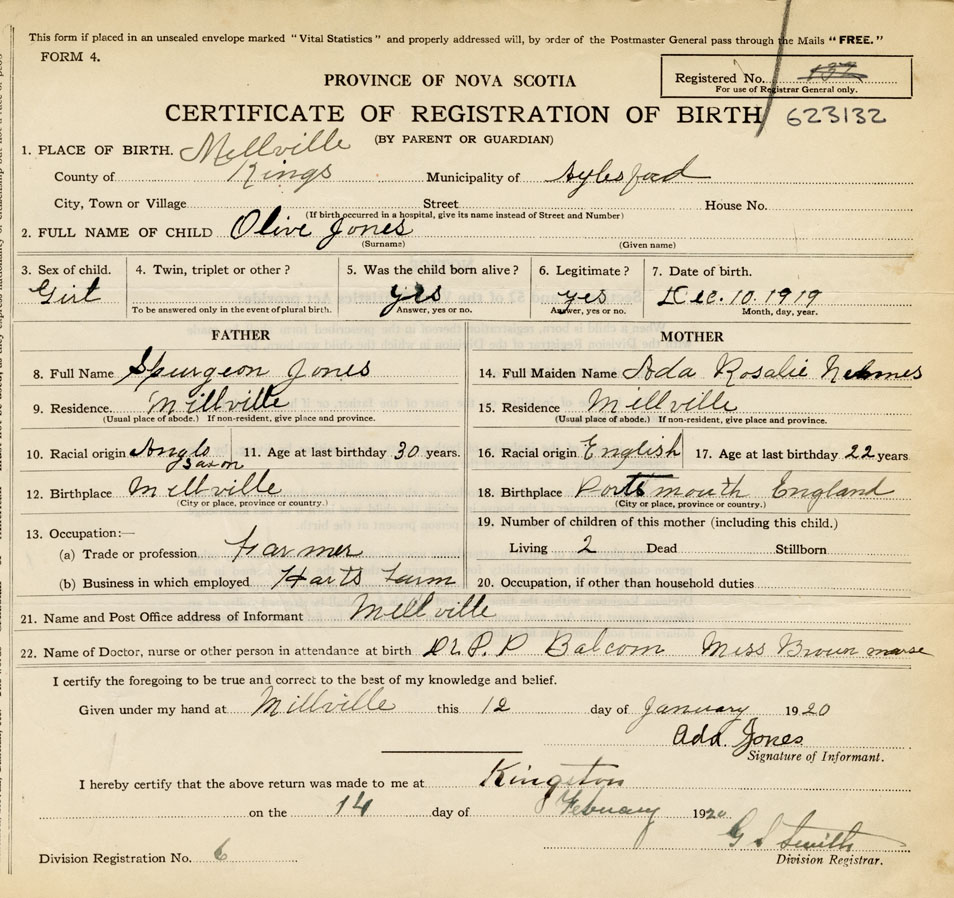 This form if placed in an unsealed envelope marked "Vital Statistics" and properly addressed will, by order of the Postmaster General pass through the Mails "FREE."
FORM 4.
PROVINCE OF NOVA SCOTIA
Registered No. 132
For use of Registrar General only.
CERTIFICATE OF REGISTRATION OF BIRTH 623132
(BY PARENT OR GUARDIAN)
1. PLACE OF BIRTH. Millville
County of Kings Municipality of Aylesford
City, Town or Village Street House No.
(If birth occurred in a hospital, give its name instead of Street and Number)
2. FULL NAME OF CHILD Olive Jones
(Surname) (Given name)
3. Sex of child. 4. Twin, triplet or other? 5. Was the child born alive? 6. Legitimate? 7. Date of birth.
Girl yes yes Dec. 10. 1919
To be answered only in the event of plural birth. Answer, yes or no. Answer, yes or no. Month, day, year.
FATHER MOTHER
8. Full Name Spurgeon Jones 14. Full Maiden Name Ada Rosalie
9. Residence. Millville 15. Residence Millville
(Usual place of abode.) If non-resident, give place and province. (Usual place of abode.) If non-resident, give place and province.
10. Racial origin Anglo Saxon 11. Age at last birthday 30 years. 16. Racial origin English 17. Age at last birthday 22 years
12. Birthplace Millville 18. Birthplace Portsmouth England
(City or place, province or country.) (City or place, province or country.)
13. Occupation:— 19. Number of children of this mother (including this child.)
(a) Trade or profession Farmer Living 2 Dead Stillborn
(b) Business in which employed Harts Farm 20. Occupation, if other than household duties
21. Name and Post Office address of Informant Millville
22. Name of Doctor, nurse or other person in attendance at birth Dr. P. P Balcom Miss Brown nurse
I certify the foregoing to be true and correct to the best of my knowledge and belief.
Given under my hand at Millville this 12 day of January 1920
Ada Jones
Signature of Informant.
I hereby certify that the above return was made to me at Kingston
on the 14 day of February 1920
G S Smith
Division Registration No. 6 Division Registrar.